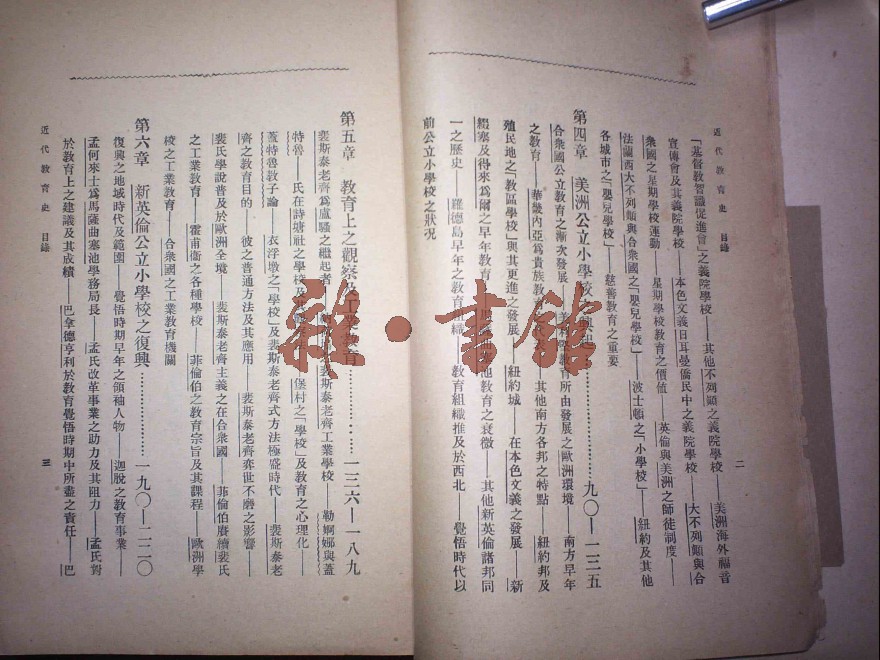 近代教育史 目錄
二
「基督教智識促進會」之義院學校——其他不列顛之義院學校——美洲海外福音
宣傳會及其義院學校——本色文義日耳曼僑民中之義院學校——大不列顛與合
衆國之星期學校運動——星期學校教育之價値——英倫與美洲之師徒制度——
法蘭西大不列顛與合衆國之「嬰兒學校」——波士頓之「小學校」——紐約及其他
各城市之「嬰兒學校」——慈善教育之重要
第四章 美洲公立小學校之興起……九〇—一三五
合衆國公立教育之漸次發展——美洲 教育所由發展之歐洲環境——南方早年
之教育——華畿內亞爲貴族教育 ——其他南方各邦之特點——紐約邦及
殖民地之「教區學校」與其更進之發展——紐約城——在本色文義之發展——新
綴塞及得來爲爾之早年教育 其他教育之衰微——其他新英倫諸邦同
一之歷史——羅德島早年之教育組織——教育組織推及於西北——覺悟時代以
前公立小學校之狀况
第五章 教育上之觀察及工業教育……一三六—一八九
裴斯泰老齊爲盧騷之繼起者—— 裴斯泰老齊工業學校——勒婀娜與蓋
特魯——氏在詩塘祉之學校及 堡村之「學校」及教育之心理化——
蓋特魯教子論 衣浮墩之「學校」及裴斯泰老齊式方法極盛時代——裴斯泰老
齊之教育目的 彼之普通方法及其應用——裴斯泰老齊奕世不磨之影響——
裴氏學說普及於歐洲全境——裴斯泰老齊主義之在合衆國——菲倫伯賡續裴氏
之工業教育——霍甫衞之各種學校——菲倫伯之教育宗旨及其課程——歐洲學
校之工業教育——合衆國之工業教育機關
第六章 新英倫公立小學校之復興……一九〇—二二〇
復興之地域時代及範圍——覺悟時期早年之領袖人物——迦脫之教育事業——
孟何來士爲馬薩曲塞池學務局長——孟氏改革事業之助力及其阻力——孟氏對
於教育上之建議及其成績——巴拿德亨利於教育覺悟時期中所盡之責任——巴
近代教育史 目錄
三
雜·書館